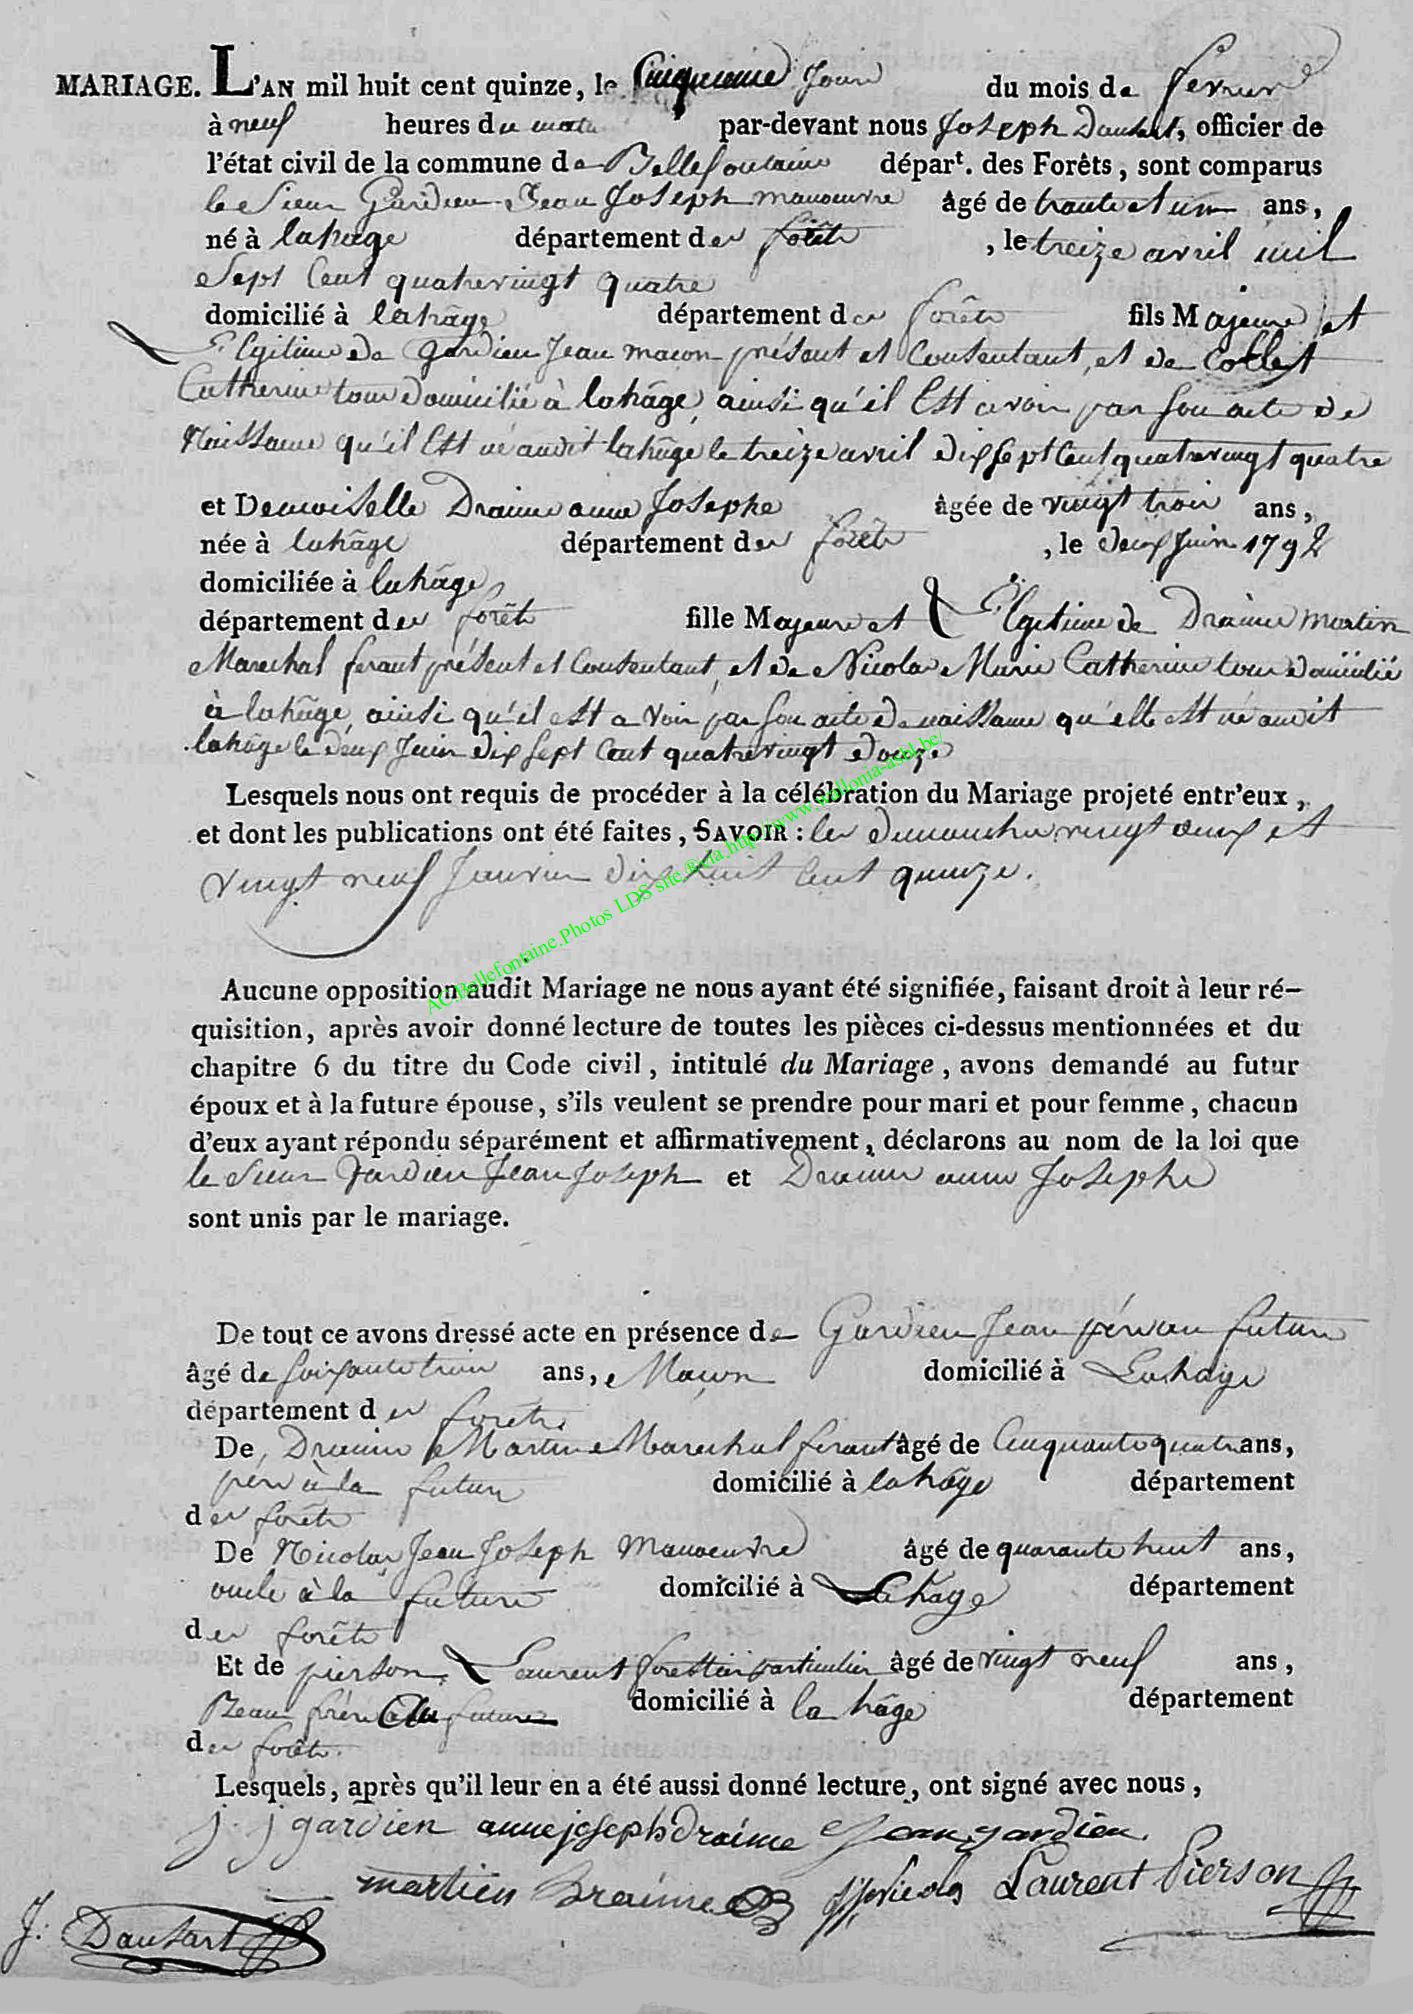 MARIAGE. L'AN mil huit cent quinze, le Cinquieme Jour du mois de fevrier
à neuf heures du matin par-devant nous Joseph Dautart, officier de
l'état civil de la commune de Bellefontaine départ. des Forêts, sont comparus
le Sieur Gardien Jean Joseph manoeuvre âgé de trante et un ans,
né à lahage département des forêts, le treize avril mil
Sept Cent quatrevingt quatre
domicilié à lahâge département des forêts fils Majeure et
Légitime de gardien Jean macon présent et Consentant, et de Collet
Catherine tous Domicilié à lahâge, ainsi qu'il Est a voir par Son acte de
Naissance qu'il Est né audit lahâge le treize avril dix Sept Cent quatrevingt quatre
et Demoiselle Draime anne Josephe âgée de vingt trois ans,
née à lahâge département des forêts, le deux Juin 1792
domiciliée à lahâge
département des forêts fille Majeure et Légitime de Draime martin
Marechal ferant présent et Consentant, et de Nicolas Marie Catherine tous domicilié
à lahâge, ainsi qu'il est a voir par Son acte de naissance qu'elle est né audit
lahâge le deux Juin dix Sept Cent quatrevingt douze
Lesquels nous ont requis de procéder à la célébration du Mariage projeté entr'eux,
et dont les publications ont été faites, SAVOIR : les dimanches vingt deux et
vingt neuf Janvier dix huit Cent quinze.
Aucune opposition audit Mariage ne nous ayant été signifiée, faisant droit à leur ré-
quisition, après avoir donné lecture de toutes les pièces ci-dessus mentionnées et du
chapitre 6 du titre du Code civil, intitulé du Mariage, avons demandé au futur
époux et à la future épouse, s'ils veulent se prendre pour mari et pour femme, chacun
d'eux ayant répondu séparément et affirmativement, déclarons au nom de la loi que
le Sieur Gardien Jean Joseph et Draime anne Josephe
sont unis par le mariage.
De tout ce avons dressé acte en présence de Gardien Jean père au futur
âgé de Soixante trois ans, Maçon domicilié à Lahage
département des forêts
De Draime Martin Marechal ferant âgé de Cinquante quatre ans,
père à la future domicilié à lahâge département
des forêts
De Nicolas Jean Joseph Manoeuvre âgé de quarante huit ans,
oncle à la future domicilié à Lahage département
des forêts
Et de pierson Laurent forestier particulier âgé de vingt neuf ans,
Beau frère au future domicilié à la hâge département
des forêts.
Lesquels, après qu'il leur en a été aussi donné lecture, ont signé avec nous,
j. j gardien anne joseph draime Jean gardien
martien Draime jj nicolas Laurent Pierson
J: Dautart
AC.Bellefontaine.Photos LDS site @ via http://www.wallonia-asbl.be/